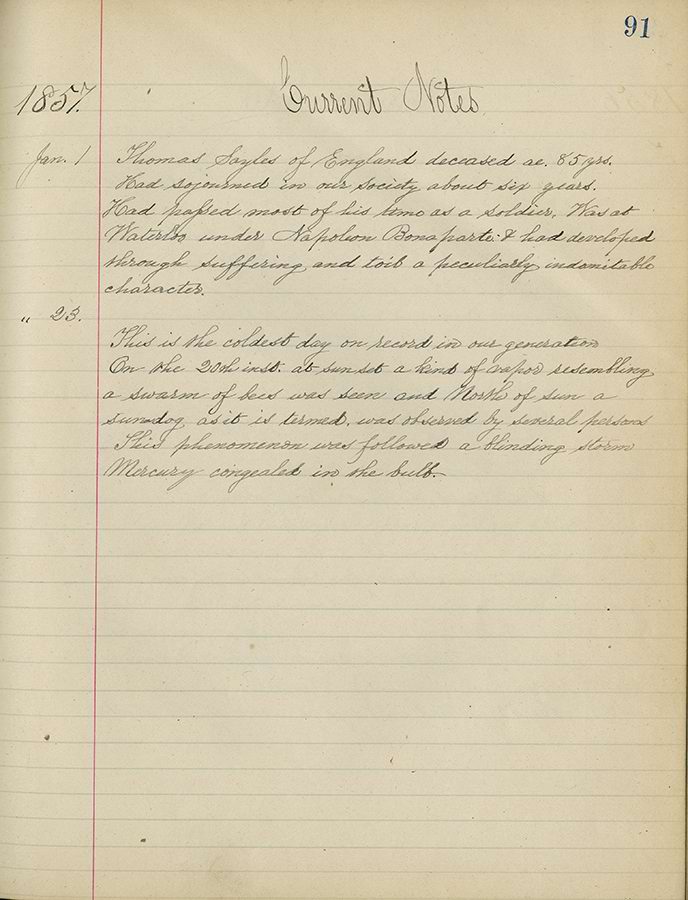 91
1857. Current Notes
Jan. 1 Thomas Sayles of England deceased ae. 85 yrs.
Had sojourned in our society about six years.
Had passed most of his time as a soldier. Was at
Waterloo under Napoleon Bonaparte & had developed
through suffering and toil a peculiarly indomitable
character.
" 23.
This is the coldest day on record in our generation
On the 20th inst. at sun set a kind of vapor resembling
a swarm of bees was seen and North of sun a
sun-dog as it is termed, was observed by several persons
This phenomenon was followed a blinding storm
Mercury congealed in the bulb.